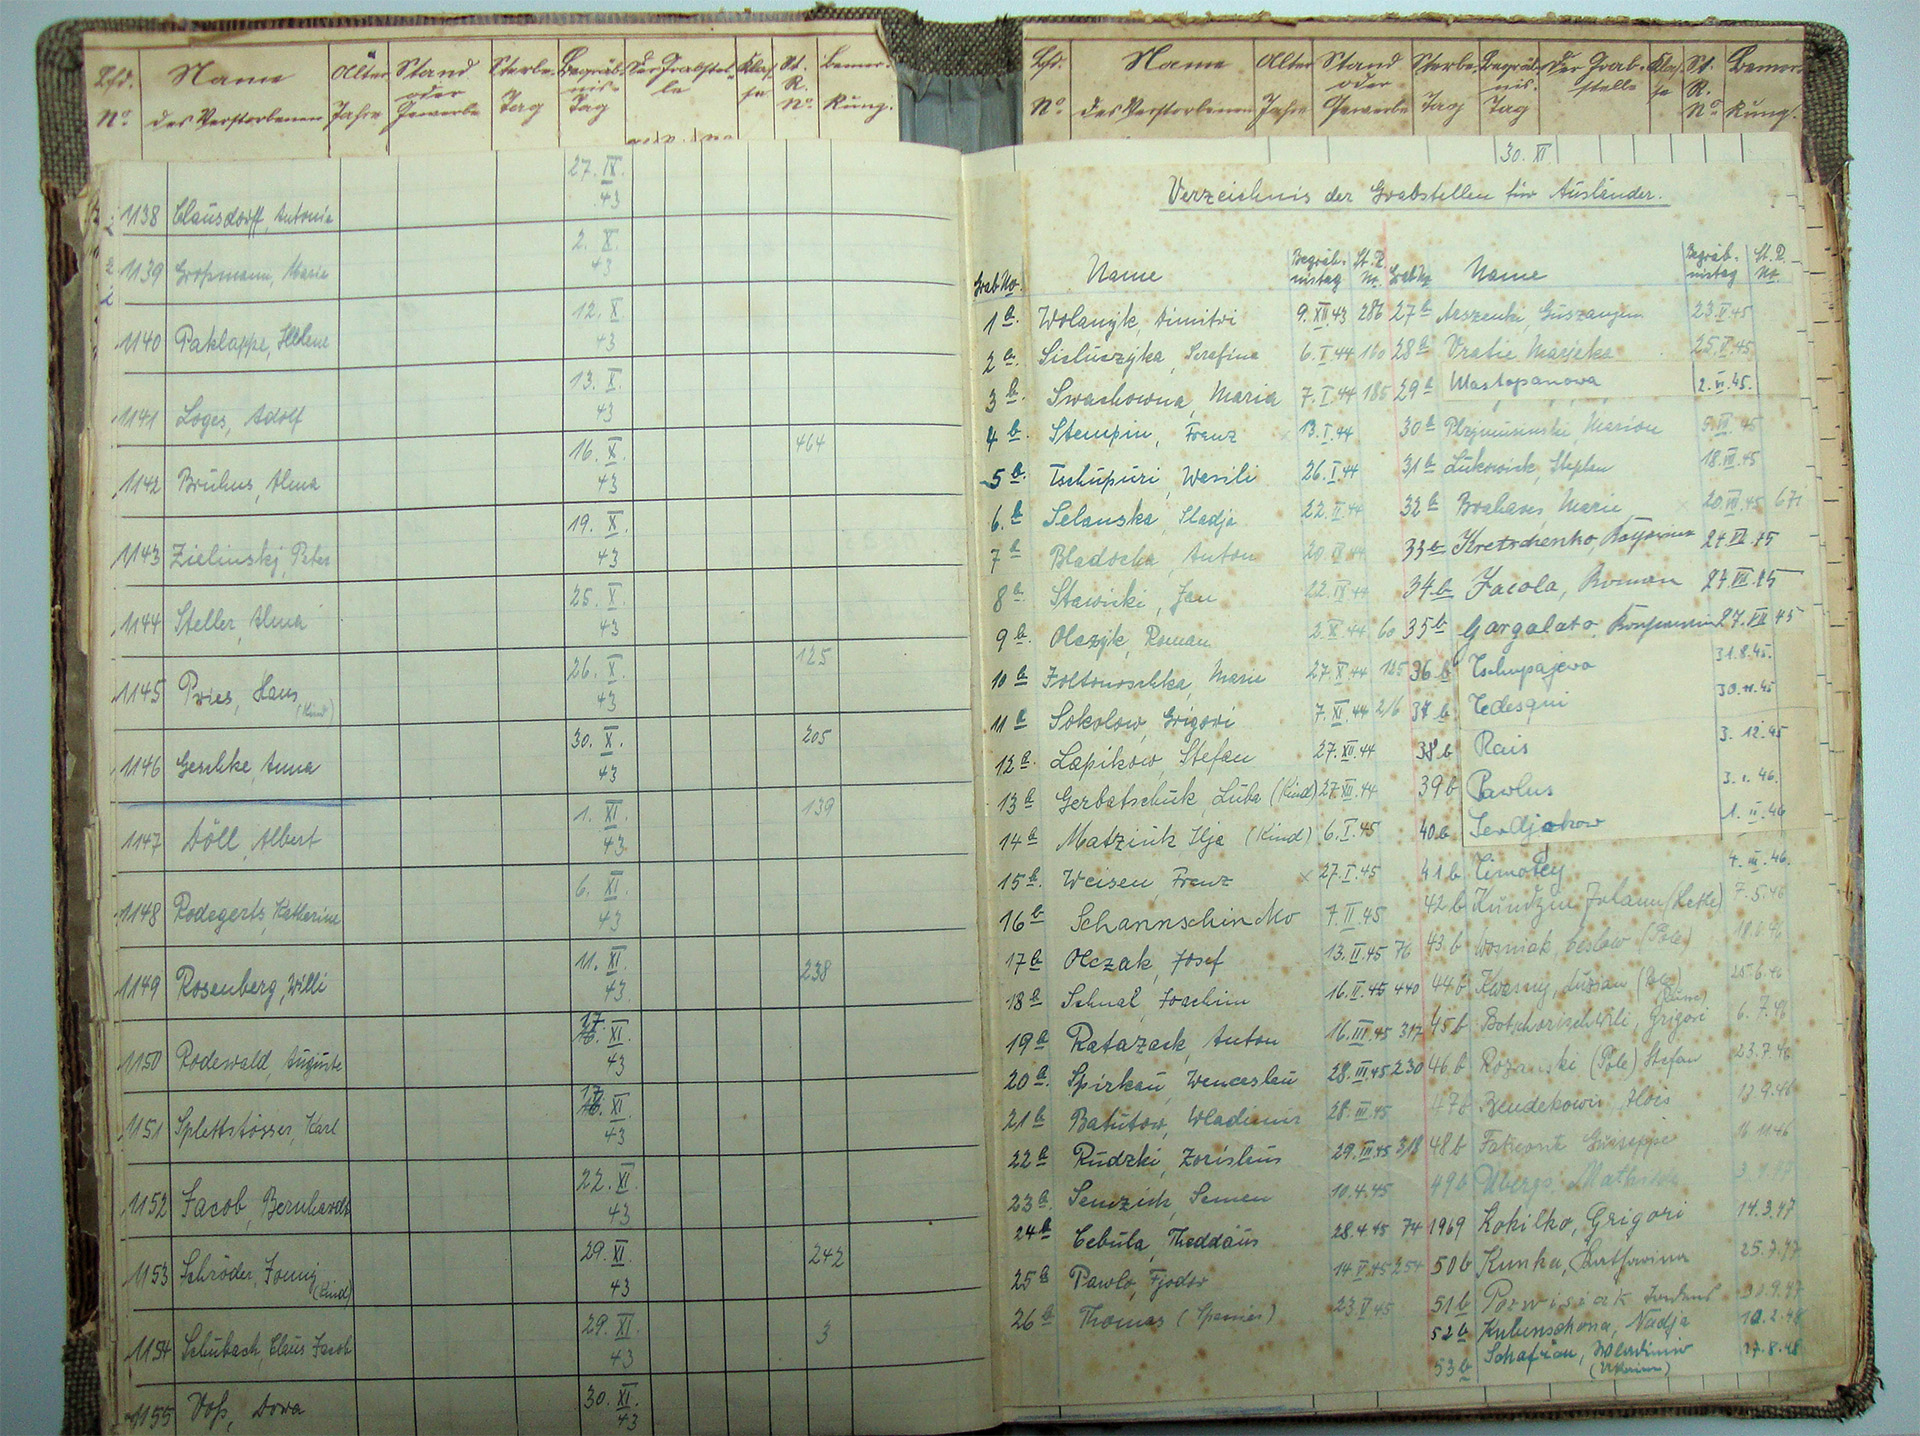 Lfd. Name Alter Stand Sterbe- Begräb- Der Grabstel- Klas- St. Bemer-
oder nis- le se R.
No. des Verstorbenen Jahre Gewerbe Tag Tag No. kung.
1138 Clausdorff, Antonie 27. IX. 43
1139 Großmann, Marie 2. X. 43
1140 Paklappe, Helene 12. X. 43
1141 Loges, Adolf 13. X. 43
1142 Bruhns, Alma 16. X. 43 464
1143 Zielinskj, Peter 19. X. 43
1144 Steller, Alma 25. X. 43
1145 Pries, Hans (Kind) 26. X. 43 125
1146 Geschke, Anna 30. X. 43 205
1147 Döll, Albert 1. XI. 43 139
1148 Rodegerts, Katherine 6. XI. 43
1149 Rosenberg, Willi 11. XI. 43 238
1150 Rodewald, Auguste 17. XI. 43
1151 Splettstösser, Karl 17. XI. 43
1152 Jacob, Bernhardt 22. XI. 43
1153 Schröder, Jonny (Kind) 29. XI. 43 242
1154 Schubach, Claus Jacob 29. XI. 43 3
1155 Voß, Dora 30. XI. 43
Lfd. Name Alter Stand Sterbe- Begräb- Der Grab- Klas- St. Bemer-
oder nis- stelle se R.
No. des Verstorbenen Jahre Gewerbe Tag Tag No. kung.
30. XI.
Verzeichnis der Grabstellen für Ausländer.
Grab No. Name Begräb-nistag St. R. No. Grab No Name Begräb-nistag St. R. No.
1a. Wolanyk, Dimitri 9. XII. 43 286 27a 23. V. 45
2a. Sisluszyka, Serafine 6. I. 44 160 28a Vratie Marjeka 25. V. 45
3b. Swachowna, Maria 7. I. 44 186 29a Mastopanowa 2. VI. 45.
4b. Stempin, Franz × 13. I. 44 30a Marian
5a. Tschupuri, Wassili 26. I. 44 31a Lukowick, Stephan 18. VII. 45
6. b Selanska, Sladja 22. II. 44 32a Marie × 20. VII. 45 671
7a Bladocha, Anton 33a Kretschenko, 24 VII. 45
8a. Stawicki, Jan 22. IX 44 34b Jacola, Roman 27. VII. 45
9b. Olczyk, Roman 2. X. 44 60 35b Gargalato, 27. VII 45
10a Zoltonoschka, Marie 27. X. 44 125 36.b Tschupajewa 31.8.45.
11a Sokolow, Grigori 7. XI. 44 216 37.b Tedesqui 30.11.45
12a. Lapikow, Stefan 27. XII. 44 38b Rais 3. 12. 45
13a Gerbatschuk, Luba (Kind) 27. XII. 44 39b Pawlus 3. 1. 46.
14a Matziuk Ilja (Kind) 6. I. 45 40b 1. II. 46
15a. Weisen, Franz × 27. I. 45 41b Timofey 4. III. 46.
16b Schannschin Mo 7. II. 45 42b Kundzin Johann (Lette) 7. 5. 46
17b Olczak, Josef 13. II. 45 76 43.b Wosniak, Ceslaw (Pole)
18a Schnat, Joachim 16. II. 45 440 44b Kwasny, Luzian (Pole) 25. 6. 46
19a Ratazack, Anton 16. III. 45 317 45b Botschorischwili, Grigori (Russe) 6. 7. 46
20a. Spirkau, Wenceslau 28. III. 45 230 46.b (Pole) Stefan 23. 7. 46
21b Batutow, Wladimir 28. III. 45 47b Bendekowis, Alois 12 9. 46
22a Rudzki, Zorislaus 29. III. 45 318 48b Giuseppe 16 11 46
23a. Senzick, Semen 10. 4. 45 49b
24b Cebula, Theddäus 28. 4. 45 74 1969 Kokilko, Grigori 14. 3. 47
25a Pawlo, Fjodor 14. V. 45 254 50b Kunka, Katharina 25. 7. 47
26a Thomas (Spanier) 23. V. 45 51b 30. 9. 47
52b Kubenschona, Nadja 10. 2. 48
53b Schafran, Wladimir (Ukrainer) 17. 8. 48